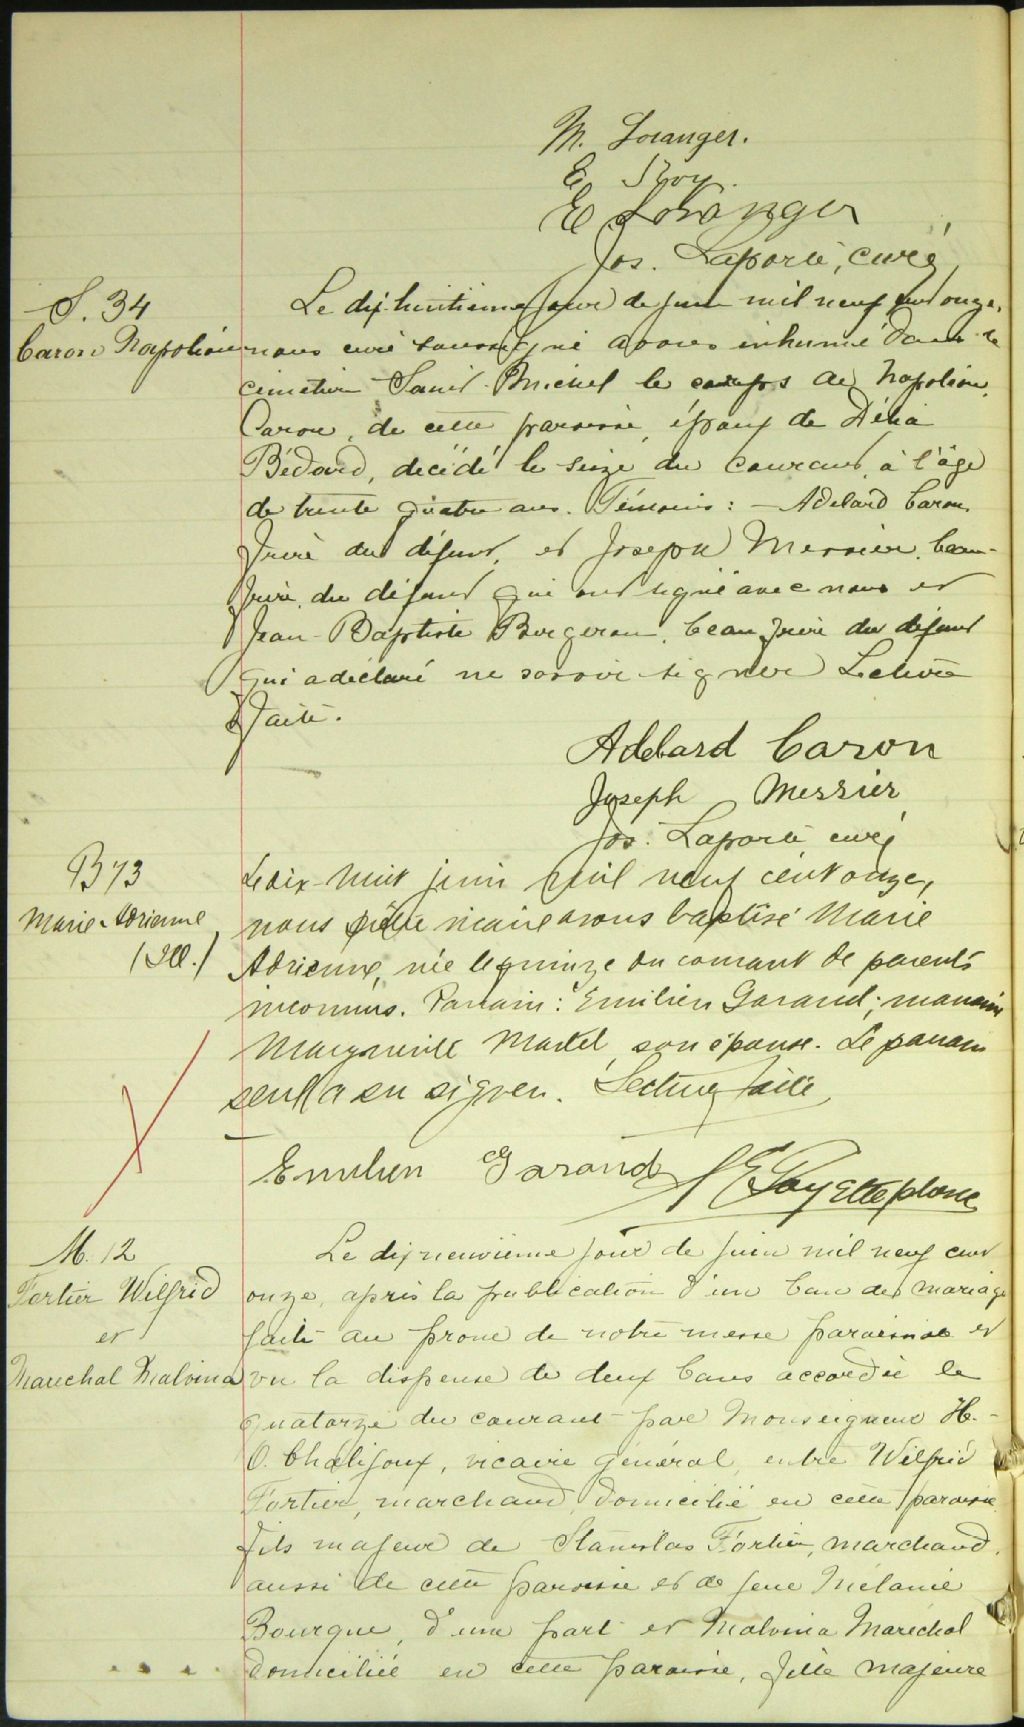 M. Loranger.
E. Roy.
E. Loranger
Jos. Laporte, curé
S. 34
Caron Napoléon
Le dix-huitième jour de juin mil neuf cent onze,
nous curé soussigné avons inhumé dans le
cimetière Saint-Michel le corps de Napoléon
Caron, de cette paroisse, époux de Délia
Bédard, décédé le seize du courant à l'âge
de trente quatre ans. Témoins: - Adélard Caron
frère du défunt, et Joseph Messier, beau-
frère du défunt qui ont signé avec nous et
Jean-Baptiste Bergeron, beau frère du défunt
qui a déclaré ne savoir signer Lecture
faite.
Adelard Caron
Joseph Messier
Jos. Laporte curé
B 73
Marie Adrienne
(Ill.)
Le dix-huit juin mil neuf cent onze,
nous prêtre vicaire avons baptisé Marie
Adrienne, née le quinze du courant de parents
inconnus. Parrain: Emilien Garand; marraine
Marguerite Martel, son épouse. Le parrain
seul a su signer. Lecture faite
Emilien Garand
M. 12
Fortier Wilfrid
et
Marechal Malvina
Le dix neuvième jour de juin mil neuf cent
onze, après la publication d'un ban de mariage
faite au prône de notre messe paroissiale et
vu la dispense de deux bans accordée le
quatorze du courant par Monseigneur H.-
O. Chalifoux, vicaire général, entre Wilfrid
Fortier, marchand, domicilié en cette paroisse
fils majeur de Stanislas Fortier, marchand,
aussi de cette paroisse et de feue Mélanie
Bourque, d'une part et Malvina Maréchal
domiciliée en cette paroisse, fille majeure